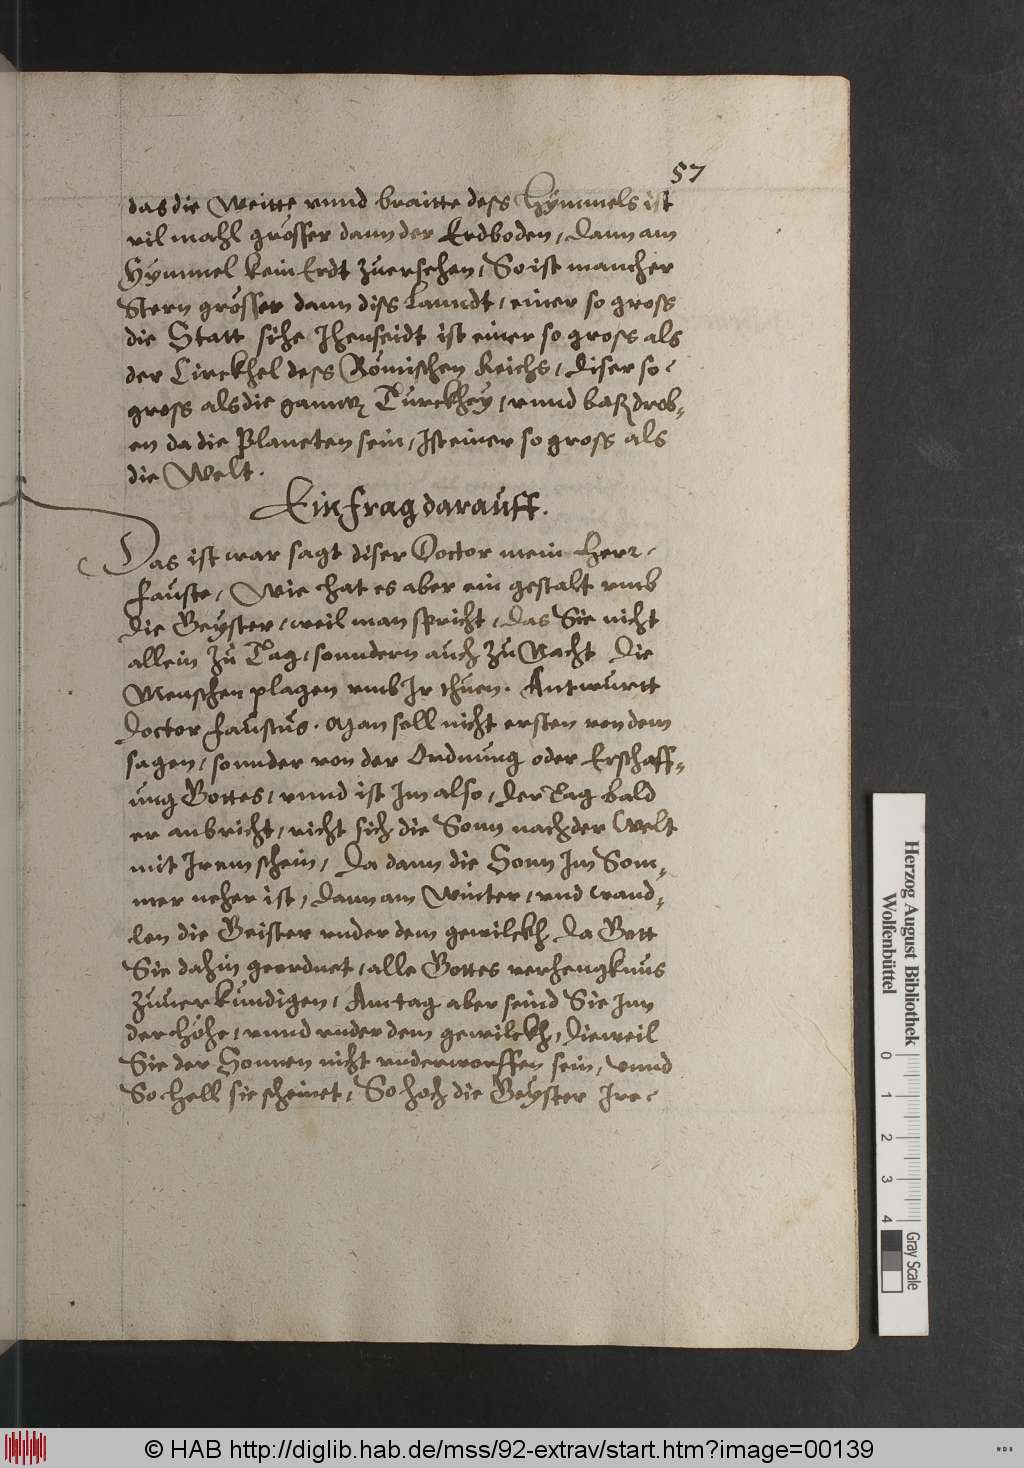 57
das die Weitte vnnd braitte dess Hÿmmels ist
vil mahl grösser dann der Erdboden, dann am
Hÿmmel kein Erdt zuersehen, So ist mancher
Stern grösser dann diss Lanndt, einer so gross
die Statt sihe Jhenseidt ist einer so gross als
der Circkhel dess Römischen Reichs, diser so
gross als die gantz Türckheÿ, vnnd baß drob„
en da die Planeten sein, Ist einer so gross als
die Welt.
Ein frag darauff.
Das ist war sagt diser Doctor mein Herr
fauste, Wie hat es aber ein gestalt vmb
die Geÿster, weil man spricht, das Sie nicht
allein zu Tag, sonndern auch zu Nacht die
Menschen plagen vmb Ir thuen. Antwurtt
doctor faustus. Man soll nicht ersten von dem
sagen, sonnder von der Ordnung oder Erschaff„
ung Gottes, vnnd ist Im also, der Tag bald
er anbricht, richt sich die Sonn nach der Welt
mit Irem schein, da dann die Sonn Im Som„
mer neher ist, dann am Winter, vnd wand„
len die Geister vnder dem gewilckh, da Gott
Sie dahin geordnet, alle Gottes verhengknus
zuuerkündigen, Am tag aber seind Sie Inn
der höhe, vnnd vnder dem gewilckh, dieweil
Sie der Sonnen nicht vnderworffen sein, vnnd
So hell sie scheinet, So hoch die Geÿster Ire
Herzog August Bibliothek
Wolfenbüttel
0 1 2 3 4
Gray Scale
© HAB http://diglib.hab.de/mss/92-extrav/start.htm?image=00139
WDB